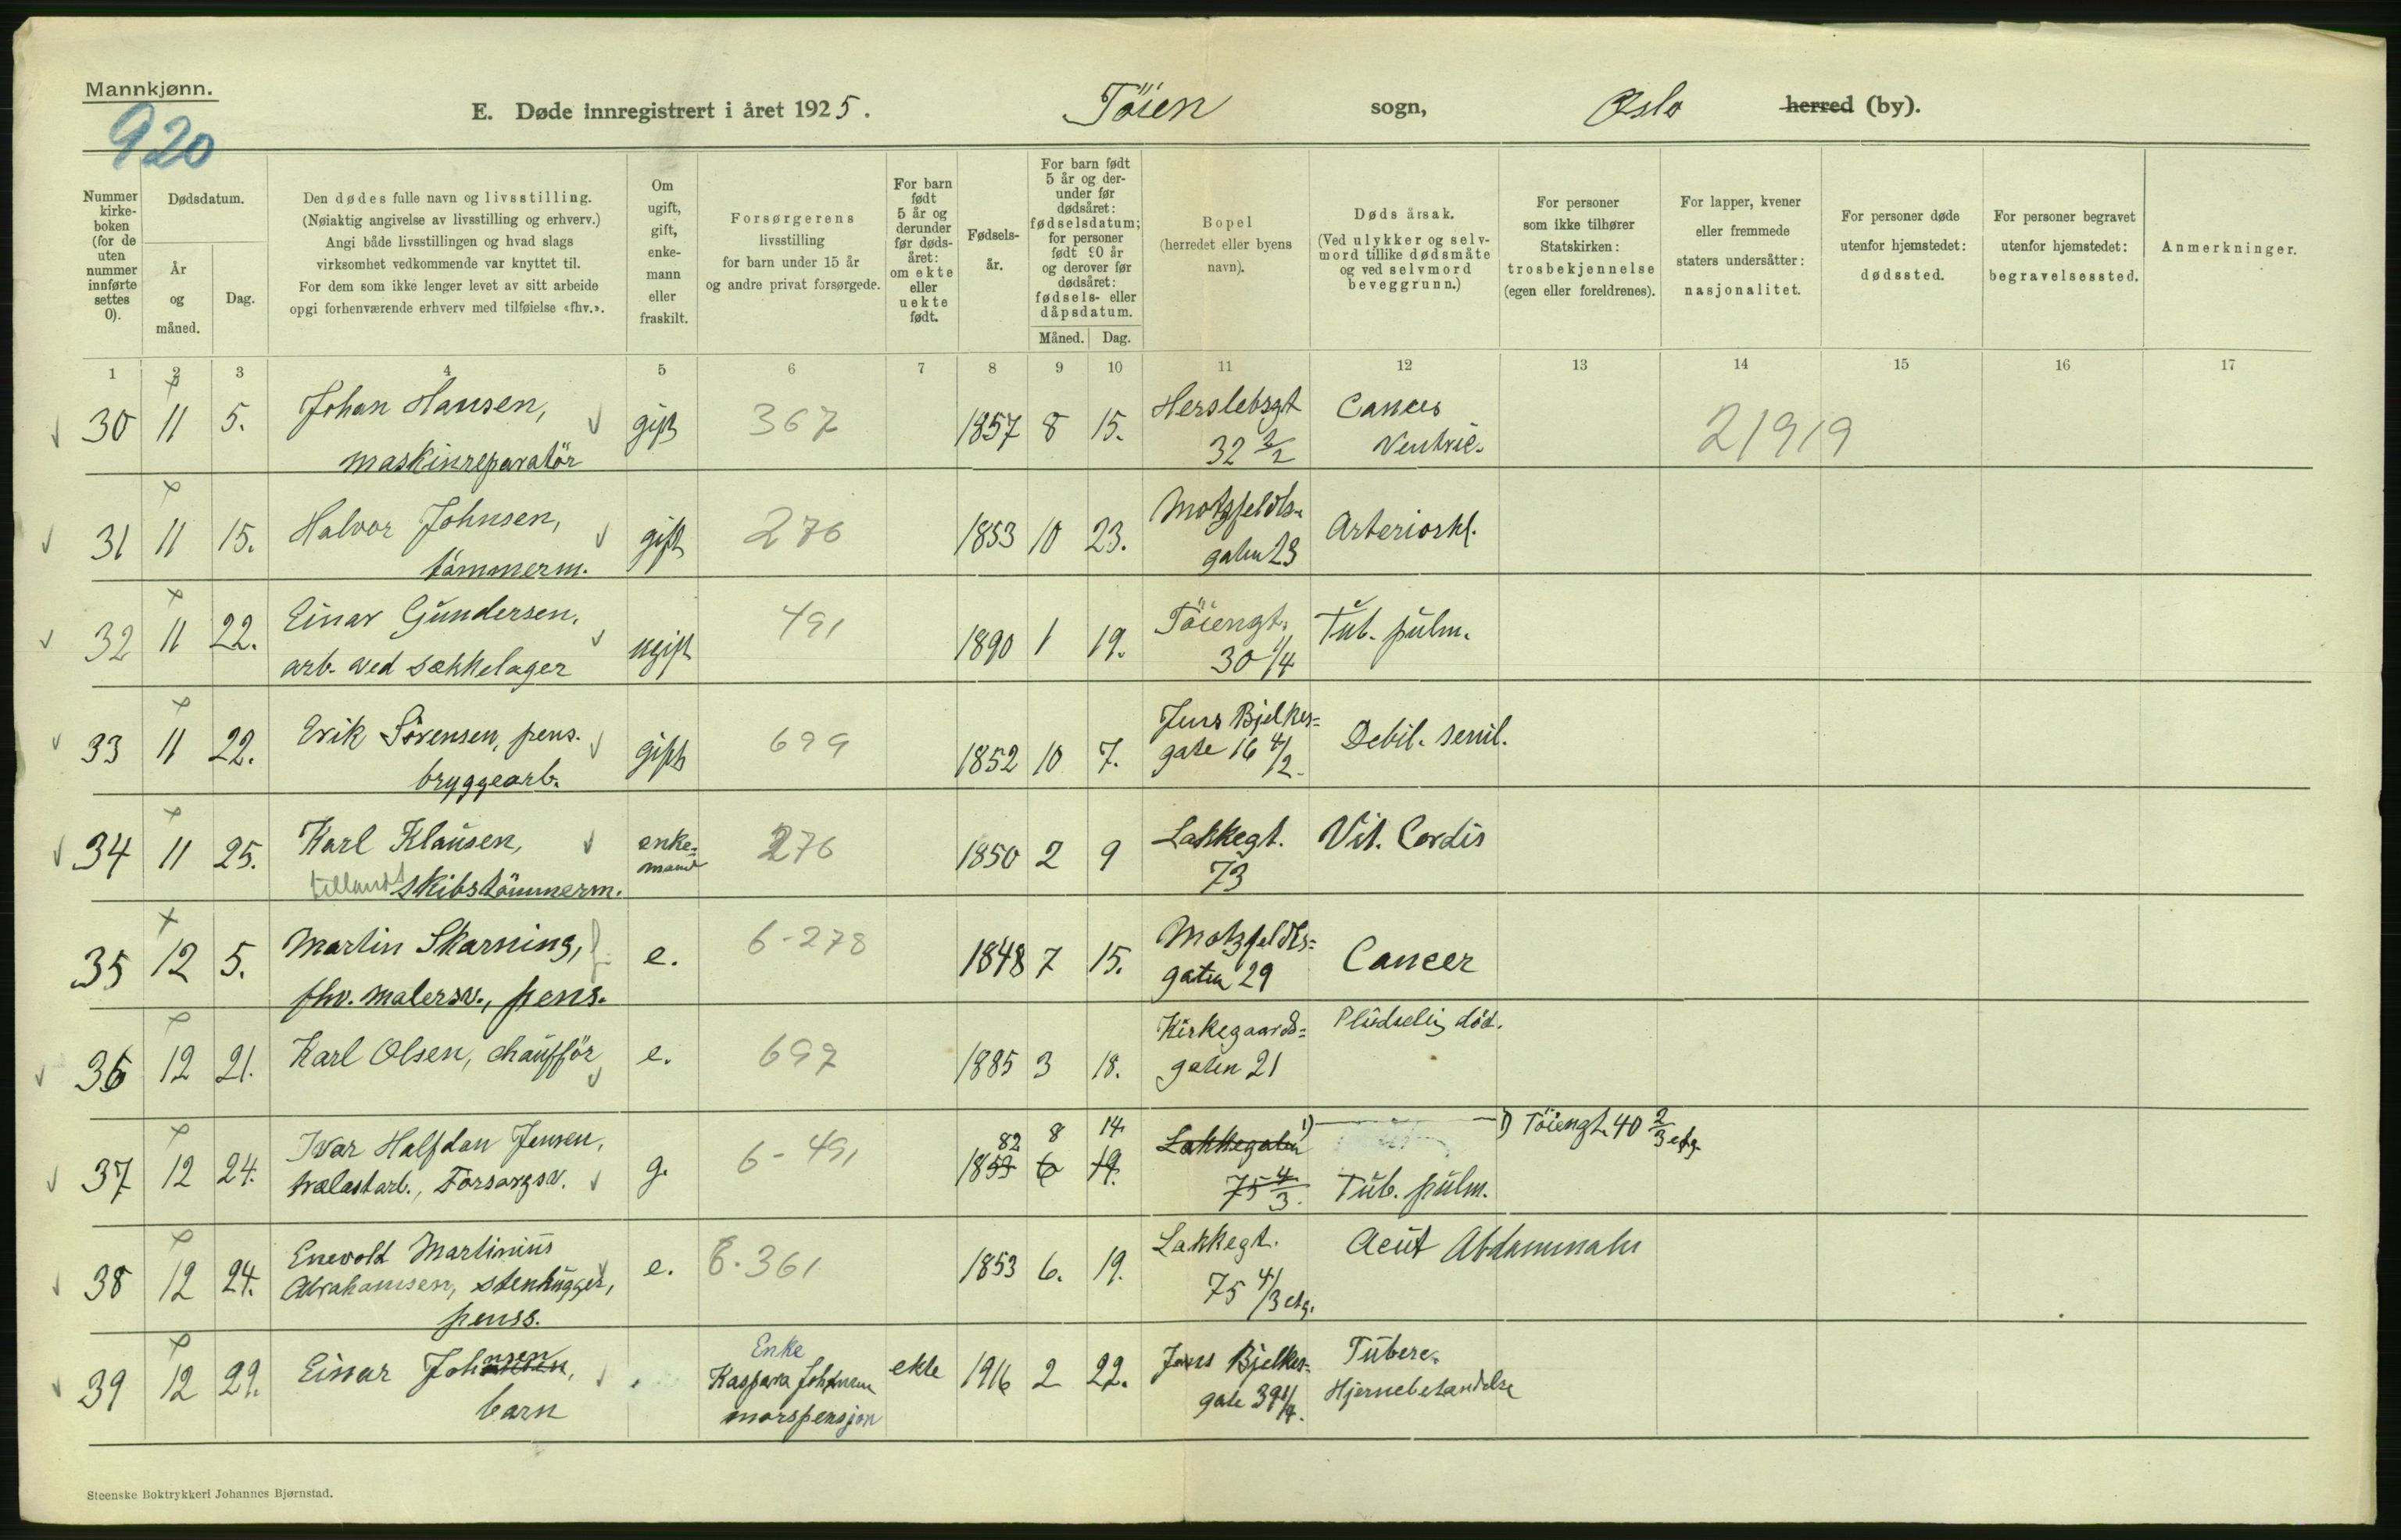 Mannkjønn.
920
E. Døde innregistrert i året 1925. Töien sogn, Oslo herred (by).
Nummer kirke-boken (for de uten nummer innførte settes 0).
Dødsdatum.
År og måned.
Dag.
Den dødes fulle navn og livsstilling.
(Nøiaktig angivelse av livsstilling og erhverv.)
Angi både livsstillingen og hvad slags
virksomhet vedkommende var knyttet til.
For dem som ikke lenger levet av sitt arbeide
opgi forhenværende erhverv med tilføielse «fhv.».
Om ugift, gift, enke-mann eller fraskilt.
Forsørgerens
livsstilling
for barn under 15 år
og andre privat forsørgede.
For barn født 5 år og derunder før døds-året: om ekte eller uekte født.
Fødsels-år.
For barn født 5 år og der-under før dødsåret: fødselsdatum; for personer født 90 år og derover før dødsåret: fødsels- eller dåpsdatum.
Måned. Dag.
Bopel
(herredet eller byens
navn).
Døds årsak.
(Ved ulykker og selv-
mord tillike dødsmåte
og ved selvmord
beveggrunn.)
For personer
som ikke tilhører
Statskirken:
trosbekjennelse
(egen eller foreldrenes).
For lapper, kvener
eller fremmede
staters undersåtter:
nasjonalitet.
For personer døde
utenfor hjemstedet:
dødssted.
For personer begravet
utenfor hjemstedet:
begravelsessted.
Anmerkninger.
1 2 3 4 5 6 7 8 9 10 11 12 13 14 15 16 17
30 11 5. Johan Hansen, gift 367 1857 8 15. Herslebsgt Cancer 21919
maskinreparatör 32 2/2 Ventric.
31 11 15. Halvor Johnsen, gift 276 1853 10 23. Motzfeldts- Arterioskl.
tömmerm. gaten 23
32 11 22. Einar Gundersen, ugift 491 1890 1 19. Töiengt. Tub. pulm.
arb. ved sækkelager 30 1/4
33 11 22. Erik Sörensen, pens. gift 699 1852 10 7. Jens Bjelkes= Debil. senil.
bryggearb. gate 16 4/2.
34 11 25. Karl Klausen, enke= mand 276 1850 2 9 Lakkegt. Vit. Cordis
tillands skibstömmerm. 73
35 12 5. Martin Skarning, e. 6-278 1848 7 15. Motzfeldts= Cancer
fhv. malersv., pens. gaten 29
36 12 21. Karl Olsen, chaufför e. 697 1885 3 18. Kirkegaards= Pludselig död.
gaten 21
37 12 24. Ivar Halfdan Jensen, g. 6-491 82 8 14 Lakkegaten 1) 1) Töiengt. 40 2/3 etg.
trælastarb., Forsorgsv. 1853 6 19. 75 4/3. Tub. pulm.
38 12 24. Enevold Martinius e. 6-361 1853 6. 19. Lakkegt. Acut Abdominalis
Abrahamsen, stenhugger, 75 4/3 etg.
penss.
39 12 29. Einar Johnsen, Enke ekte 1916 2 22. Jens Bjelkes= Tuberc.
barn Kaspara Johnsen gate 39 1/4. Hjernebetændelse
morspensjon
Steenske Boktrykkeri Johannes Bjørnstad.